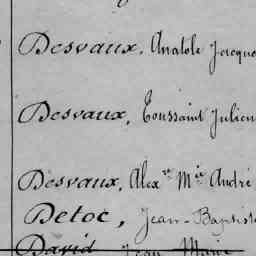 Desvaux, Anatole Jacque
Desvaux, Toussaint Julien
Desvaux, Alexre Mie André
Detoc, Jean-Baptist
David Jean Marie